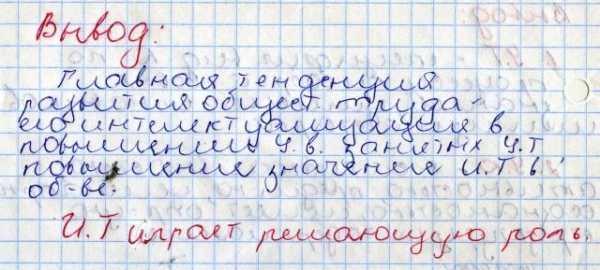 Вывод:
Главная тенденция
развития общест. труда -
его интелектуализация в
повышение ч.в. занятых И.Т
повышение значение И.Т в
об-ве.
И.Т играет решающую роль.